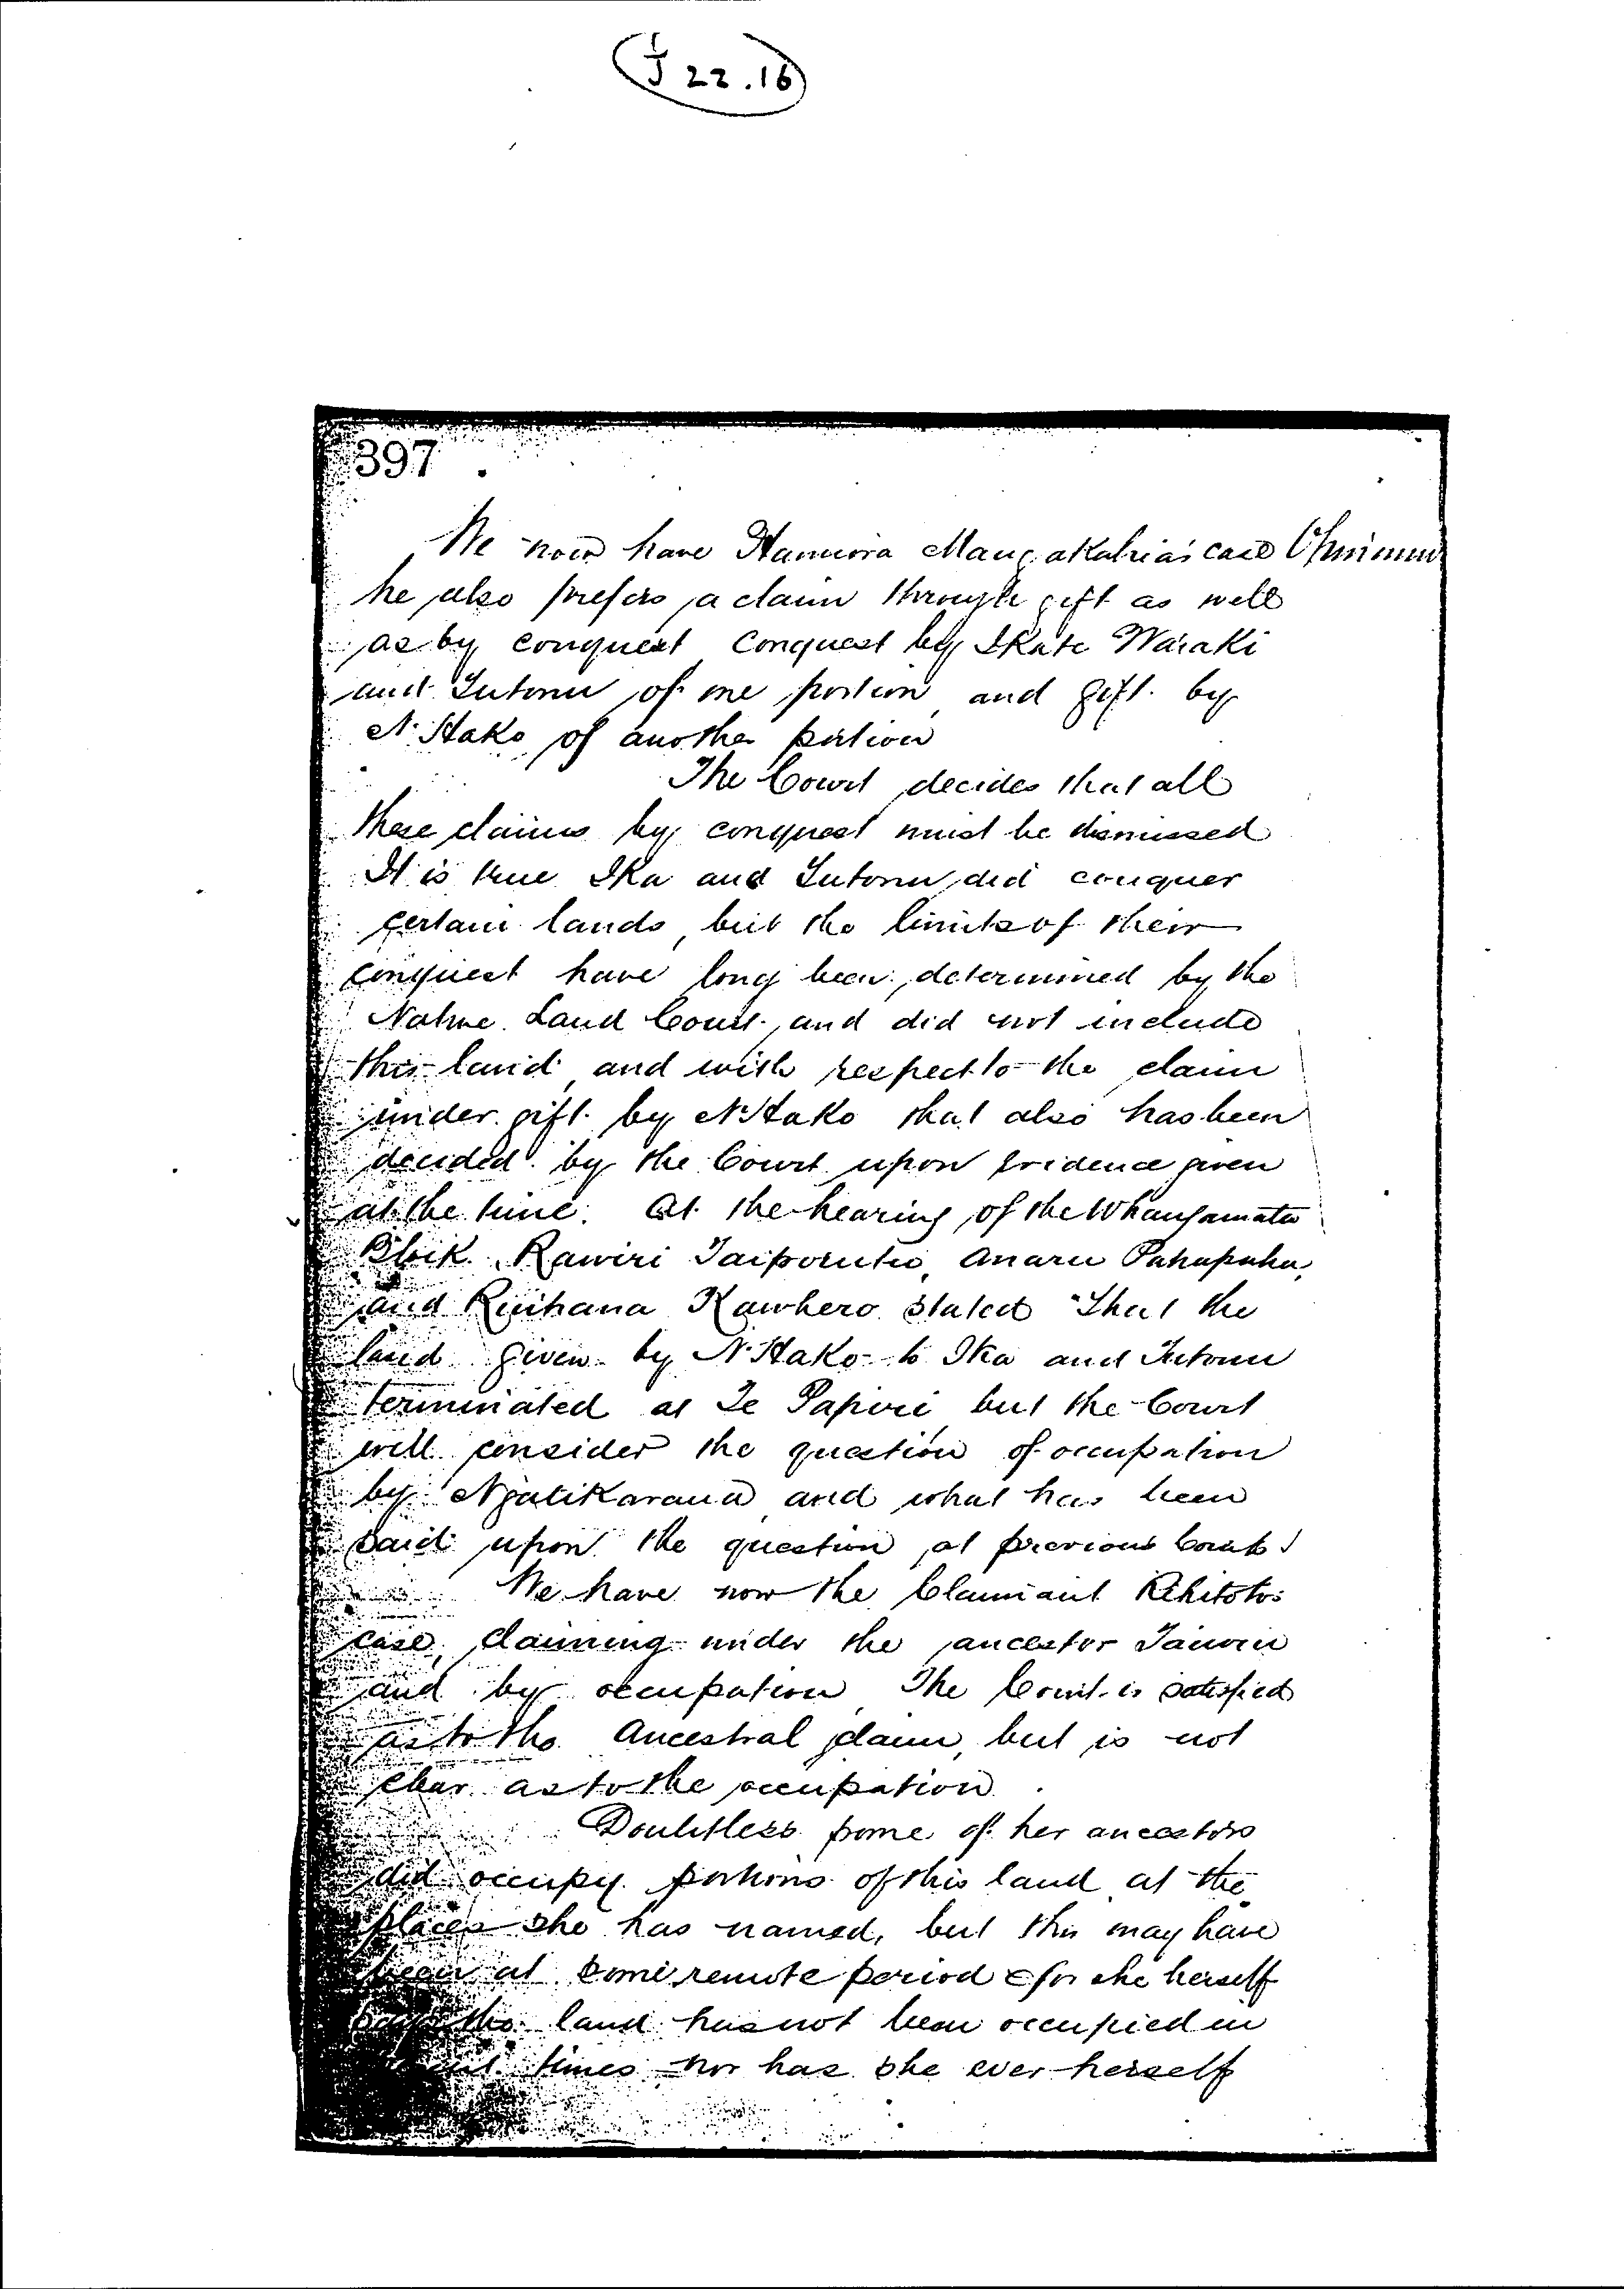 J 22.16
397
We now have Hamiora Mangakahia's case Ohinimu
he also prefers a claim through gift as well
as by conquest Conquest by Ikate Waraki
and Tutonu of one portion, and gift by
N. Hako of another portion
The Court decides that all
these claims by conquest must be dismissed
It is true Ika and Tutonu did conquer
certain lands, but the limits of their
conquest have long been determined by the
Native Land Court, and did not include
this land, and with respect to the claim
under gift by N Hako that also has been
decided by the Court upon evidence given
at the time. At the hearing of the Whangamata
Block Rawiri Taiporutu, Anaru Pahapaha,
and Ruihana Kawhero stated "That the
land given by N. Hako to Ika and Tutonu
terminated at Te Papui but the Court
will consider the question of occupation
by Ngatikaraua and what has been
said upon the question at previous Courts
We have now the Claimant Rihitoto's
case, claiming under the ancestor
and by occupation, The Court is satisfied
as to the Ancestral claim, but is not
clear as to the occupation
Doubtless some of her ancestors
did occupy portions of this land at the
places she has named, but this may have
been at some remote period for she herself
says the land has not been occupied in
times nor has she ever herself